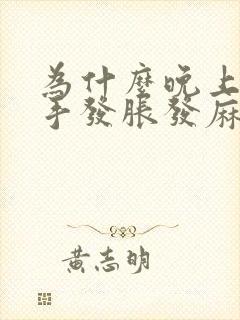 為什麼晚上
手發脹發麻
黃志明